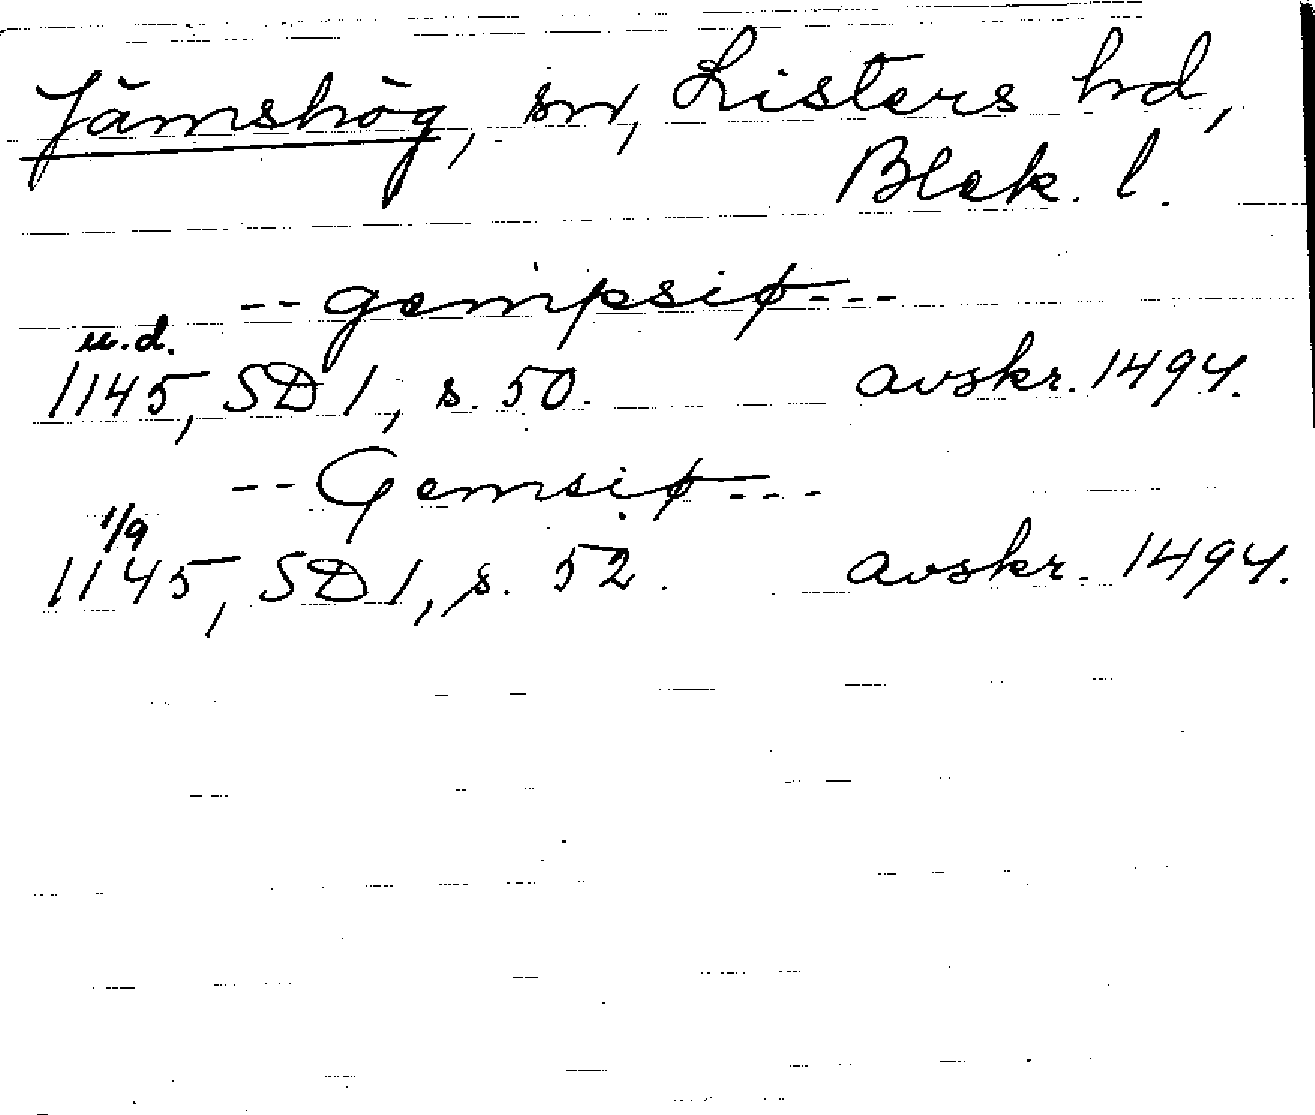 Jämshög, sn, Listers hd,
Blek. l.
-- gempsiø---
u.d.
1145, SD 1, s. 50. avskr. 1494.
-- Gemsiø---
1/9
1145, SD 1, s. 52. avskr. 1494.